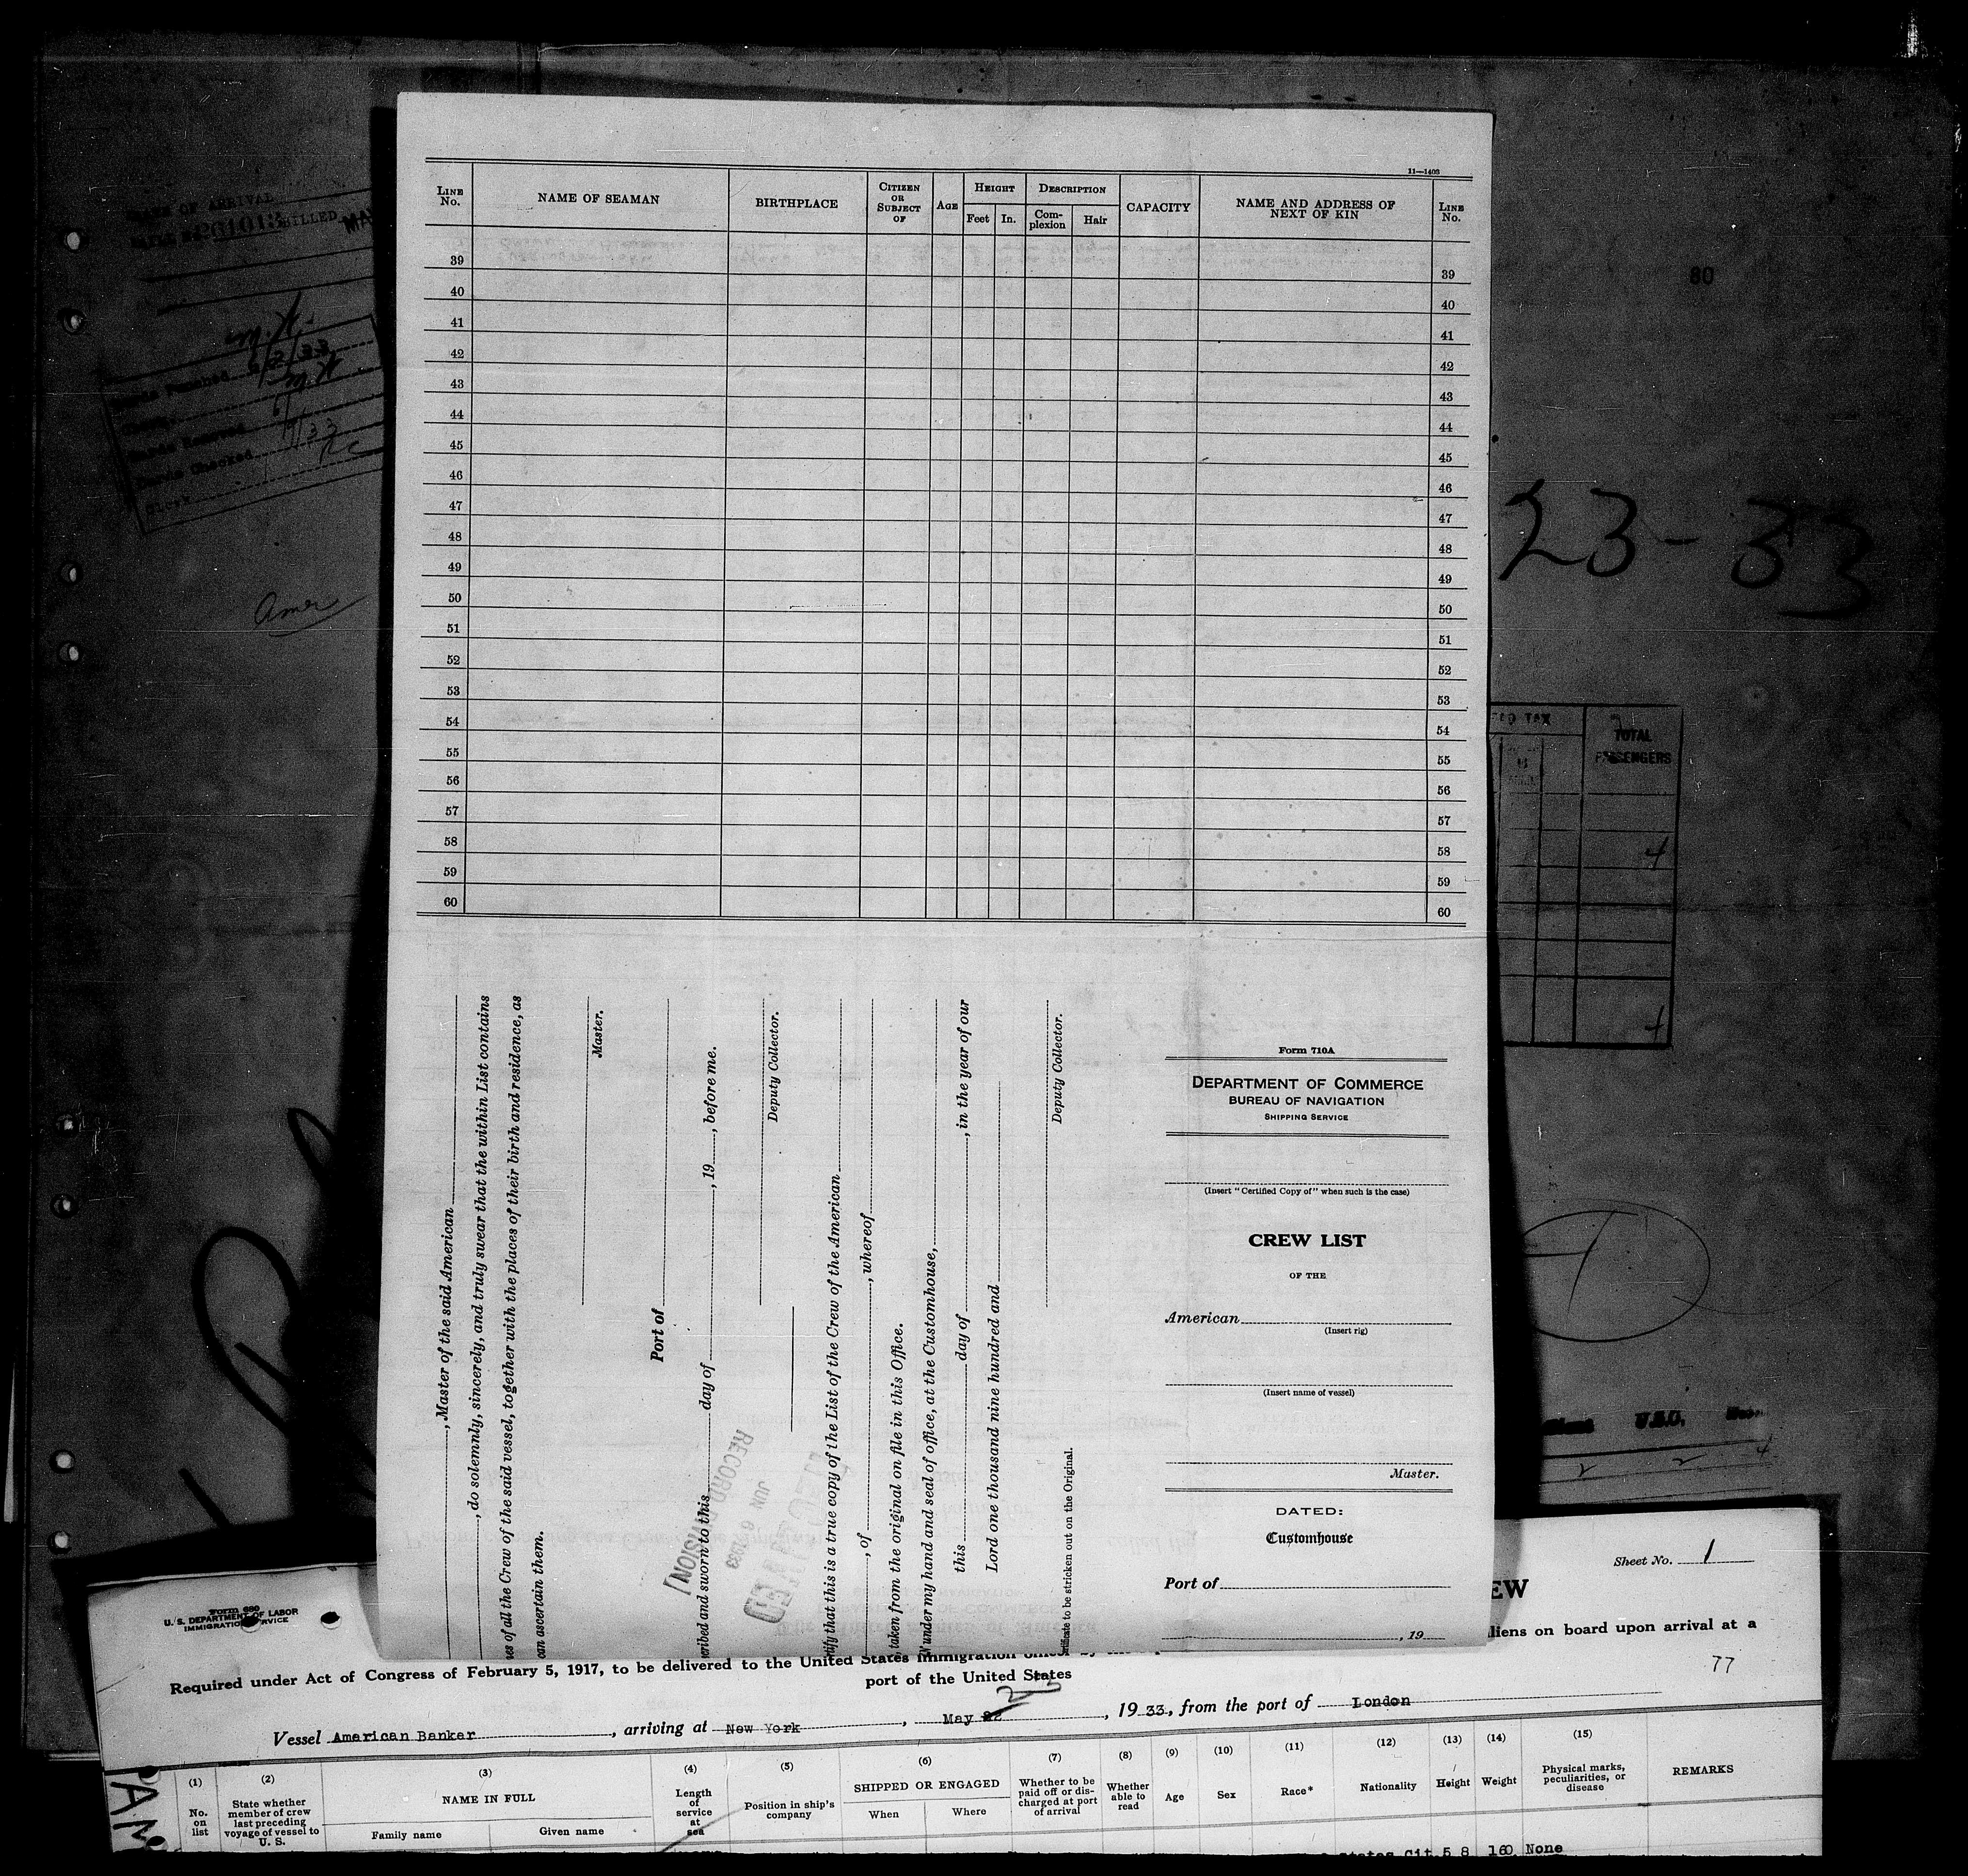 11—1403
LINE No. NAME OF SEAMAN BIRTHPLACE CITIZEN OR SUBJECT OF AGE HEIGHT Feet In. DESCRIPTION Complexion Hair CAPACITY NAME AND ADDRESS OF NEXT OF KIN LINE No.
39 39
40 40
41 41
42 42
43 43
44 44
45 45
46 46
47 47
48 48
49 49
50 50
51 51
52 52
53 53
54 54
55 55
56 56
57 57
58 58
59 59
60 60
, Master of the said American
, do solemnly, sincerely, and truly swear that the within List contains
of all the Crew of the said vessel, together with the places of their birth and residence, as
can ascertain them.
Master.
Port of
and sworn to this day of , 19 , before me.
Deputy Collector.
that this is a true copy of the List of the Crew of the American
, of , whereof
taken from the original on file in this Office.
under my hand and seal of office, at the Customhouse,
this day of , in the year of our
Lord one thousand nine hundred and
Deputy Collector.
to be stricken out on the Original.
RECORD DIVISION
JUN 6 1933
Form 710A
DEPARTMENT OF COMMERCE
BUREAU OF NAVIGATION
SHIPPING SERVICE
(Insert "Certified Copy of" when such is the case)
CREW LIST
OF THE
American
(Insert rig)
(Insert name of vessel)
Master.
DATED:
Customhouse
Port of
, 19
80
23-33
TAX
TOTAL
PASSENGERS
4
4
U.S.C.
2 2 4
M.H.
6/2/33
M.H.
Amer
Sheet No. 1
EW
Form 680
U. S. DEPARTMENT OF LABOR
IMMIGRATION SERVICE
liens on board upon arrival at a
Required under Act of Congress of February 5, 1917, to be delivered to the United States Immigration officer by
port of the United States
77
Vessel American Banker , arriving at New York , May 23 , 1933, from the port of London
(1) (2) (3) (4) (5) (6) (7) (8) (9) (10) (11) (12) (13) (14) (15)
No. on list State whether member of crew last preceding voyage of vessel to U. S. NAME IN FULL Family name Given name Length of service at sea Position in ship's company SHIPPED OR ENGAGED When Where Whether to be paid off or discharged at port of arrival Whether able to read Age Sex Race* Nationality Height Weight Physical marks, peculiarities, or disease REMARKS
States Cit. 5 8 160 None